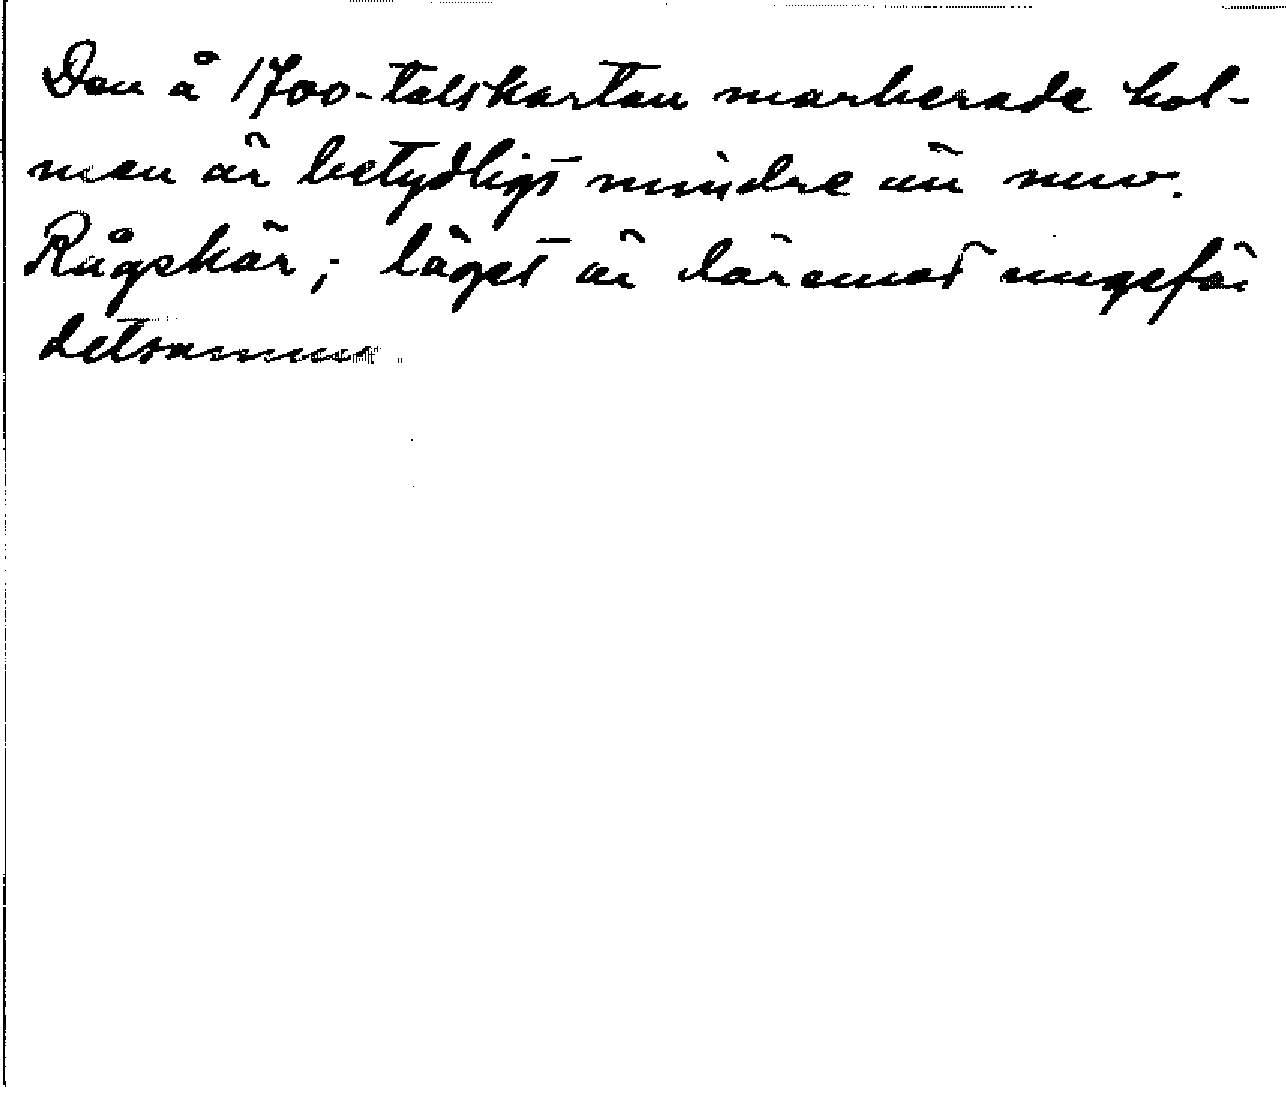 Den å 1700-talskartan markerade hol-
men är betydligt mindre än nuv.
Rågskär; läget är däremot ungefär
detsamma.